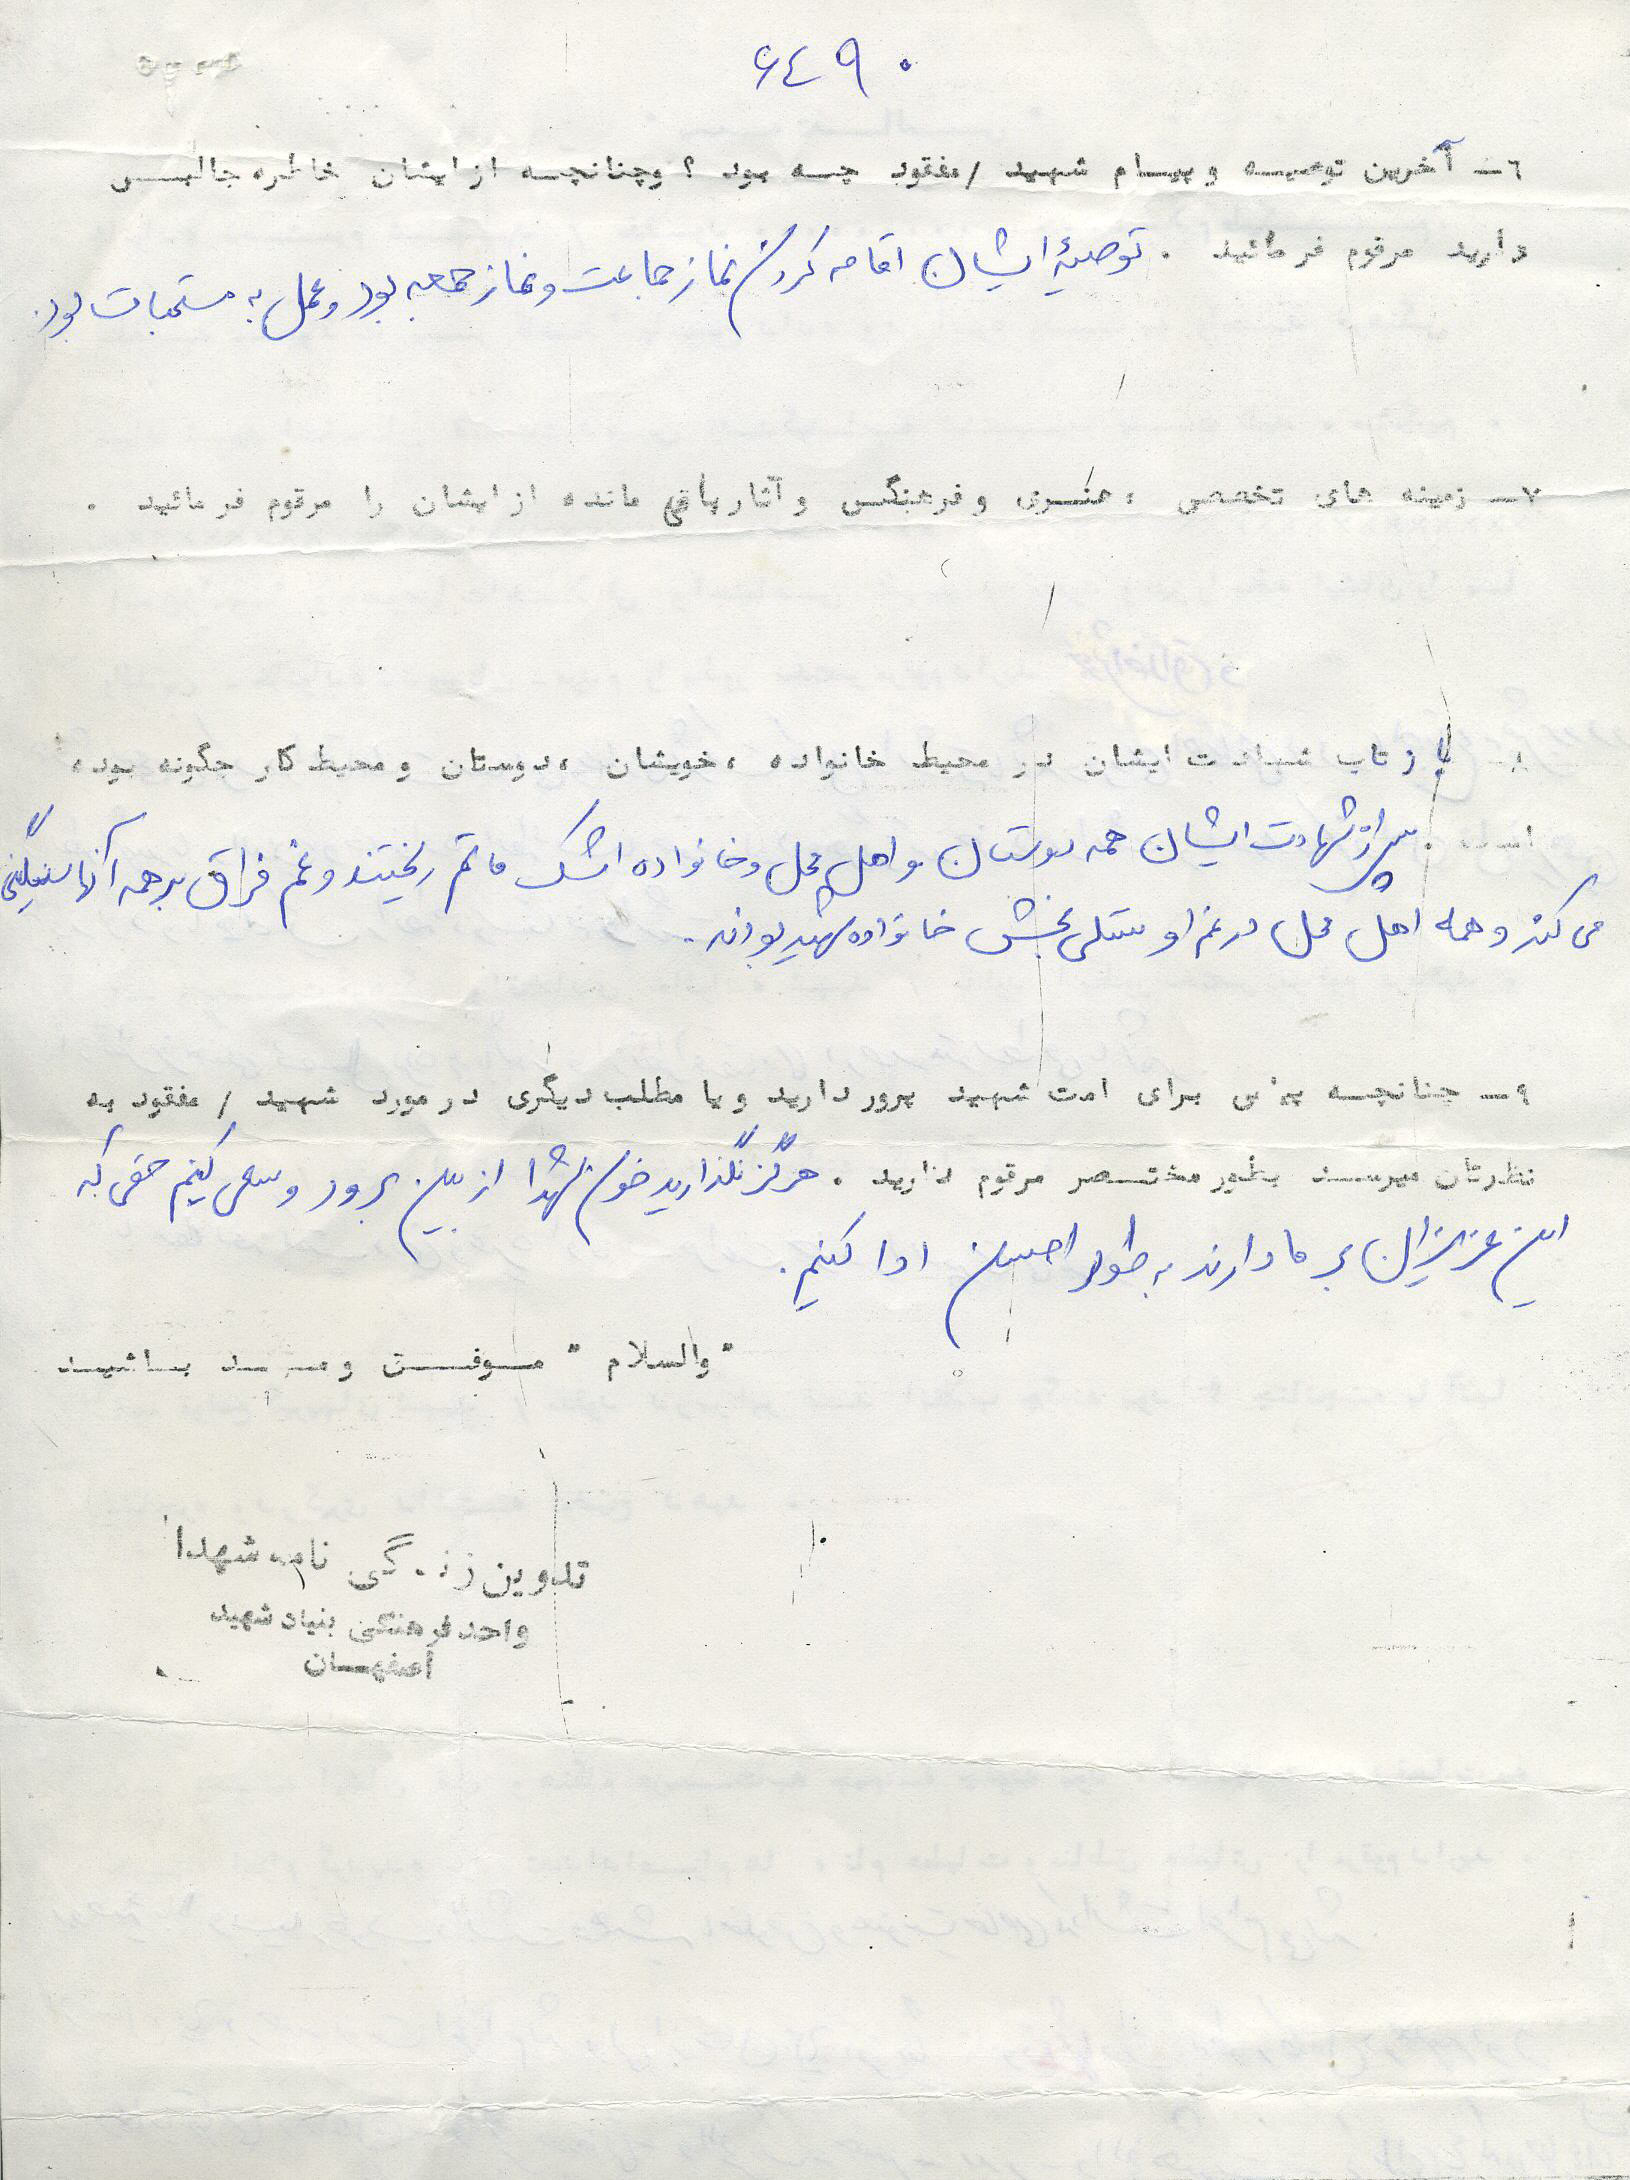 ۶۴۹۰
۶ـ آخرین توصیه و پیام شهید / مفقود چه بود ؟ و چنانچه از ایشان خاطره جالبی
دارید مرقوم فرمائید . توصیهٔ ایشان اقامه کردن نماز جماعت و نماز جمعه بود و عمل به مستحبات بود.
۷ـ زمینه های تخصصی ، هنری و فرهنگی و آثار باقی مانده از ایشان را مرقوم فرمائید .
۸ـ بازتاب شهادت ایشان در محیط خانواده ، خویشان ، دوستان و محیط کار چگونه بوده
است . پس از شهادت ایشان همه دوستان و اهل محل و خانواده اشک ماتم ریختند و غم فراق بر همه آنها سنگینی
می کند و همه اهل محل در غم او تسلی بخش خانواده شهید بودند.
۹ـ چنانچه پیامی برای امت شهید پرور دارید و یا مطلب دیگری در مورد شهید / مفقود به
نظرتان میرسد بطور مختصر مرقوم دارید . هرگز نگذارید خون شهدا از بین برود و سعی کنیم حقی که
این عزیزان بر ما دارند به طور احسن ادا کنیم.
"والسلام " موفق و مؤید باشید
تدوین زندگی نامه شهدا
واحد فرهنگی بنیاد شهید
اصفهان